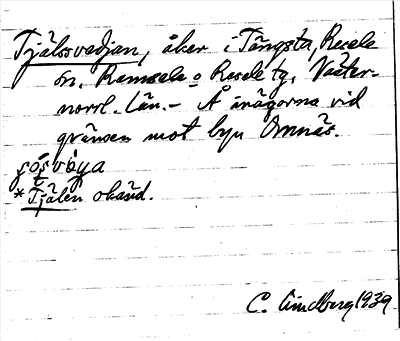 Tjälsvedjan, åker i Tängsta, Resele
sn, Ramsele o Resele tg, Väster-
norrl. län. – Å inägorna vid
gränsen mot byn Omnäs.
* Tjälen okänd.
C. Lindberg 1939